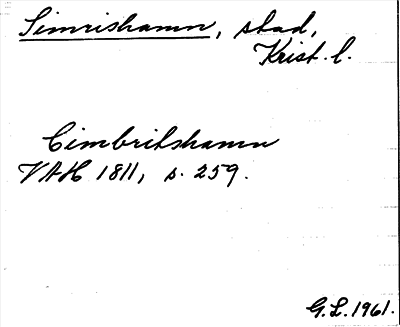 Simrishamn, stad,
Krist. l.
Cimbritshamn
VAH 1811, s. 259.
G.L. 1961.